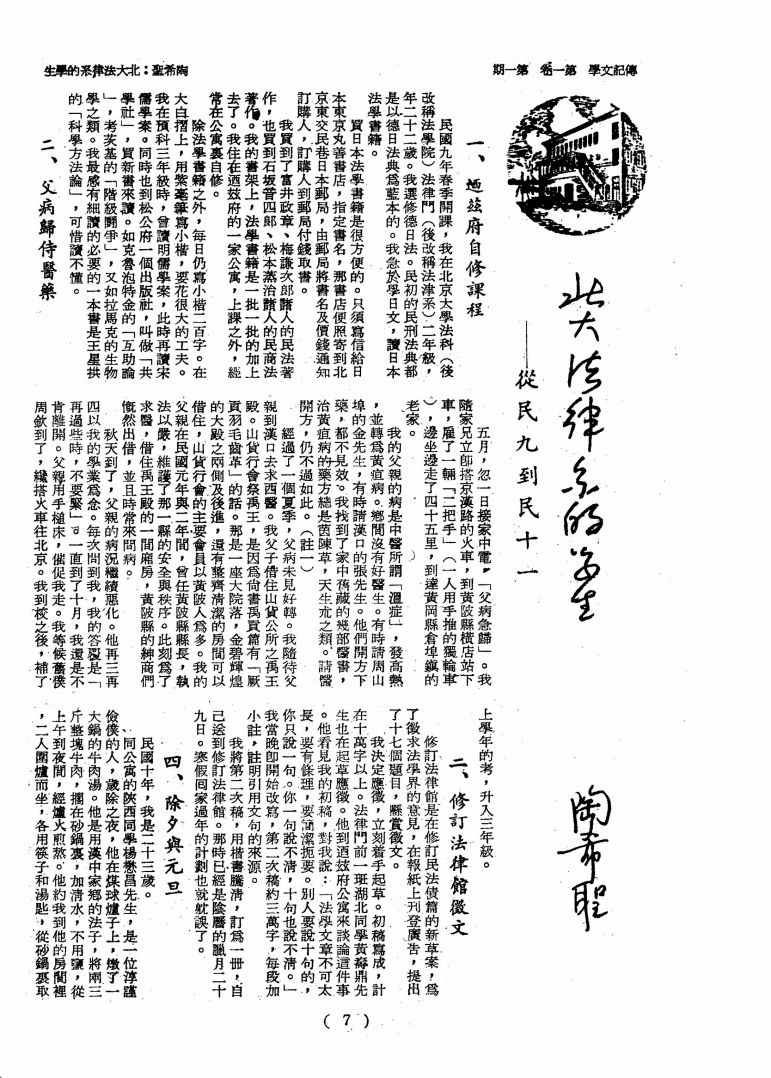 傳記文學　第一卷　第一期
陶希聖：北大法律系的學生
北大法律系的學生
──從民九到民十一
陶希聖
一、迺玆府自修課程
民國九年春季開課，我在北京大學法科（後
改稱法學院）法律門（後改稱法津系）二年級，
年二十二歲。我選修德日法。民初的民刑法典都
是以德日法典爲藍本的。我急於學日文，讀日本
法學書籍。
買日本法學書籍是很方便的。只須寫信給日
本東京丸善書店，指定書名，那書店便照寄到北
京東交民巷日本郵局，由郵局將書名及價錢通知
訂購人，訂購人到郵局付錢取書。
我買到了富井政章、梅謙次郎諸人的民法著
作，也買到石坂音四郎、松本烝治諸人的民商法
著作。我的書架上，法學書籍是一批一批的加上
去了。我住在迺玆府的一家公寓，上課之外，經
常在公寓裏自修。
除法學書籍之外，每日仍寫小楷二百字。在
大白摺上，用紫毫筆寫小楷，要花很大的工夫。
我在預科三年級時，曾讀明儒學案，此時再讀宋
儒學案。同時也到松公府一個出版社，叫做「共
學社」，買新書來讀。如克魯泡特金的「互助論
」，考茨基的「階級鬬爭」，又如拉馬克的生物
學之類。我最感有細讀的必要的一本書是王星拱
的「科學方法論」，可惜讀不懂。
二、父病歸侍醫藥
五月，忽一日接家中電，「父病急歸」。我
隨家兄立卽搭京漢路的火車，到黃陂縣橫店站下
車，雇了一輛「二把手」（一人用手推的獨輪車
），邊坐邊走了四十五里，到達黃岡縣倉埠鎮的
老家。
我的父親的病是中醫所謂「溫症」，發高熱
，並轉爲黃疸病。鄕間沒有好醫生。有時請周山
埠的金先生，有時請漢口的張先生。他們開方下
藥，都不見效。我找到了家中舊藏的幾部醫書，
治黃疸病的藥方總是茵陳草，天生朮之類。請醫
開方，仍不過如此。（註一）
經過了一個夏季，父病未見好轉。我隨侍父
親到漢口去求西醫。我父子借住山貨公所之禹王
殿。山貨行會祭禹王，是因爲尙書禹貢篇有「厥
貢羽毛齒革」的話。那是一座大院落，金碧輝煌
的大殿之兩側及後進，還有整齊清潔的房間可以
借住，山貨行會的主要會員以黃陂人爲多。我的
父親在民國元年與二年間，曾任黃陂縣縣長，執
法以嚴，維護了那一縣的安全與秩序。此刻爲了
求醫，借住禹王殿的一間廂房，黃陂縣的紳商們
慨然出借，並且時常來問病。
秋天到了，父親的病況繼續惡化。他再三再
四以我的學業爲念。每次問到我，我的答覆是「
再過些時，不要緊」。一直到了十月，我還是不
肯離開。父親用手槌床，催促我走。我等候舊僕
周斂到了，纔搭火車往北京。我到校之後，補了
上學年的考，升入三年級。
二、修訂法律館徵文
修訂法律館是在修訂民法債篇的新草案，爲
了徵求法學界的意見，在報紙上刊登廣吿，提出
了十七個題目，懸賞徵文。
我決定應徵，立刻着手起草。初稿寫成，計
在十萬字以上。法律門前一班湖北同學黃壽鼎先
生也在起草應徵。他到迺玆府公寓來談論這件事
。他看見我的初稿，對我說：「法學文章不可太
長，要有條理，要簡潔扼要。別人要說十句的，
你只說一句。你一句說不清，十句也說不清。」
我當晚卽開始改寫，第二次稿約三萬字，每段加
小註，註明引用文句的來源。
我將第二次稿，用楷書騰淸，訂爲一冊，自
己送到修訂法律館。那時已經是陰曆的臘月二十
九日。寒假回家過年的計劃也就躭誤了。
四、除夕與元旦
民國十年，我是二十三歲。
同公寓的陝西同學楊懋昌先生，是一位淳謹
儉僕的人，歲除之夜，他在煤球爐子上，燉了一
大鍋的牛肉湯。他是用漢中家鄕的法子，將兩三
斤整塊牛肉，擱在砂鍋裏，加淸水，不用鹽，從
上午到夜間，經爐火煎熬。他約我到他的房間裡
，二人圍爐而坐，各用筷子和湯匙，從砂鍋裏取
（7）